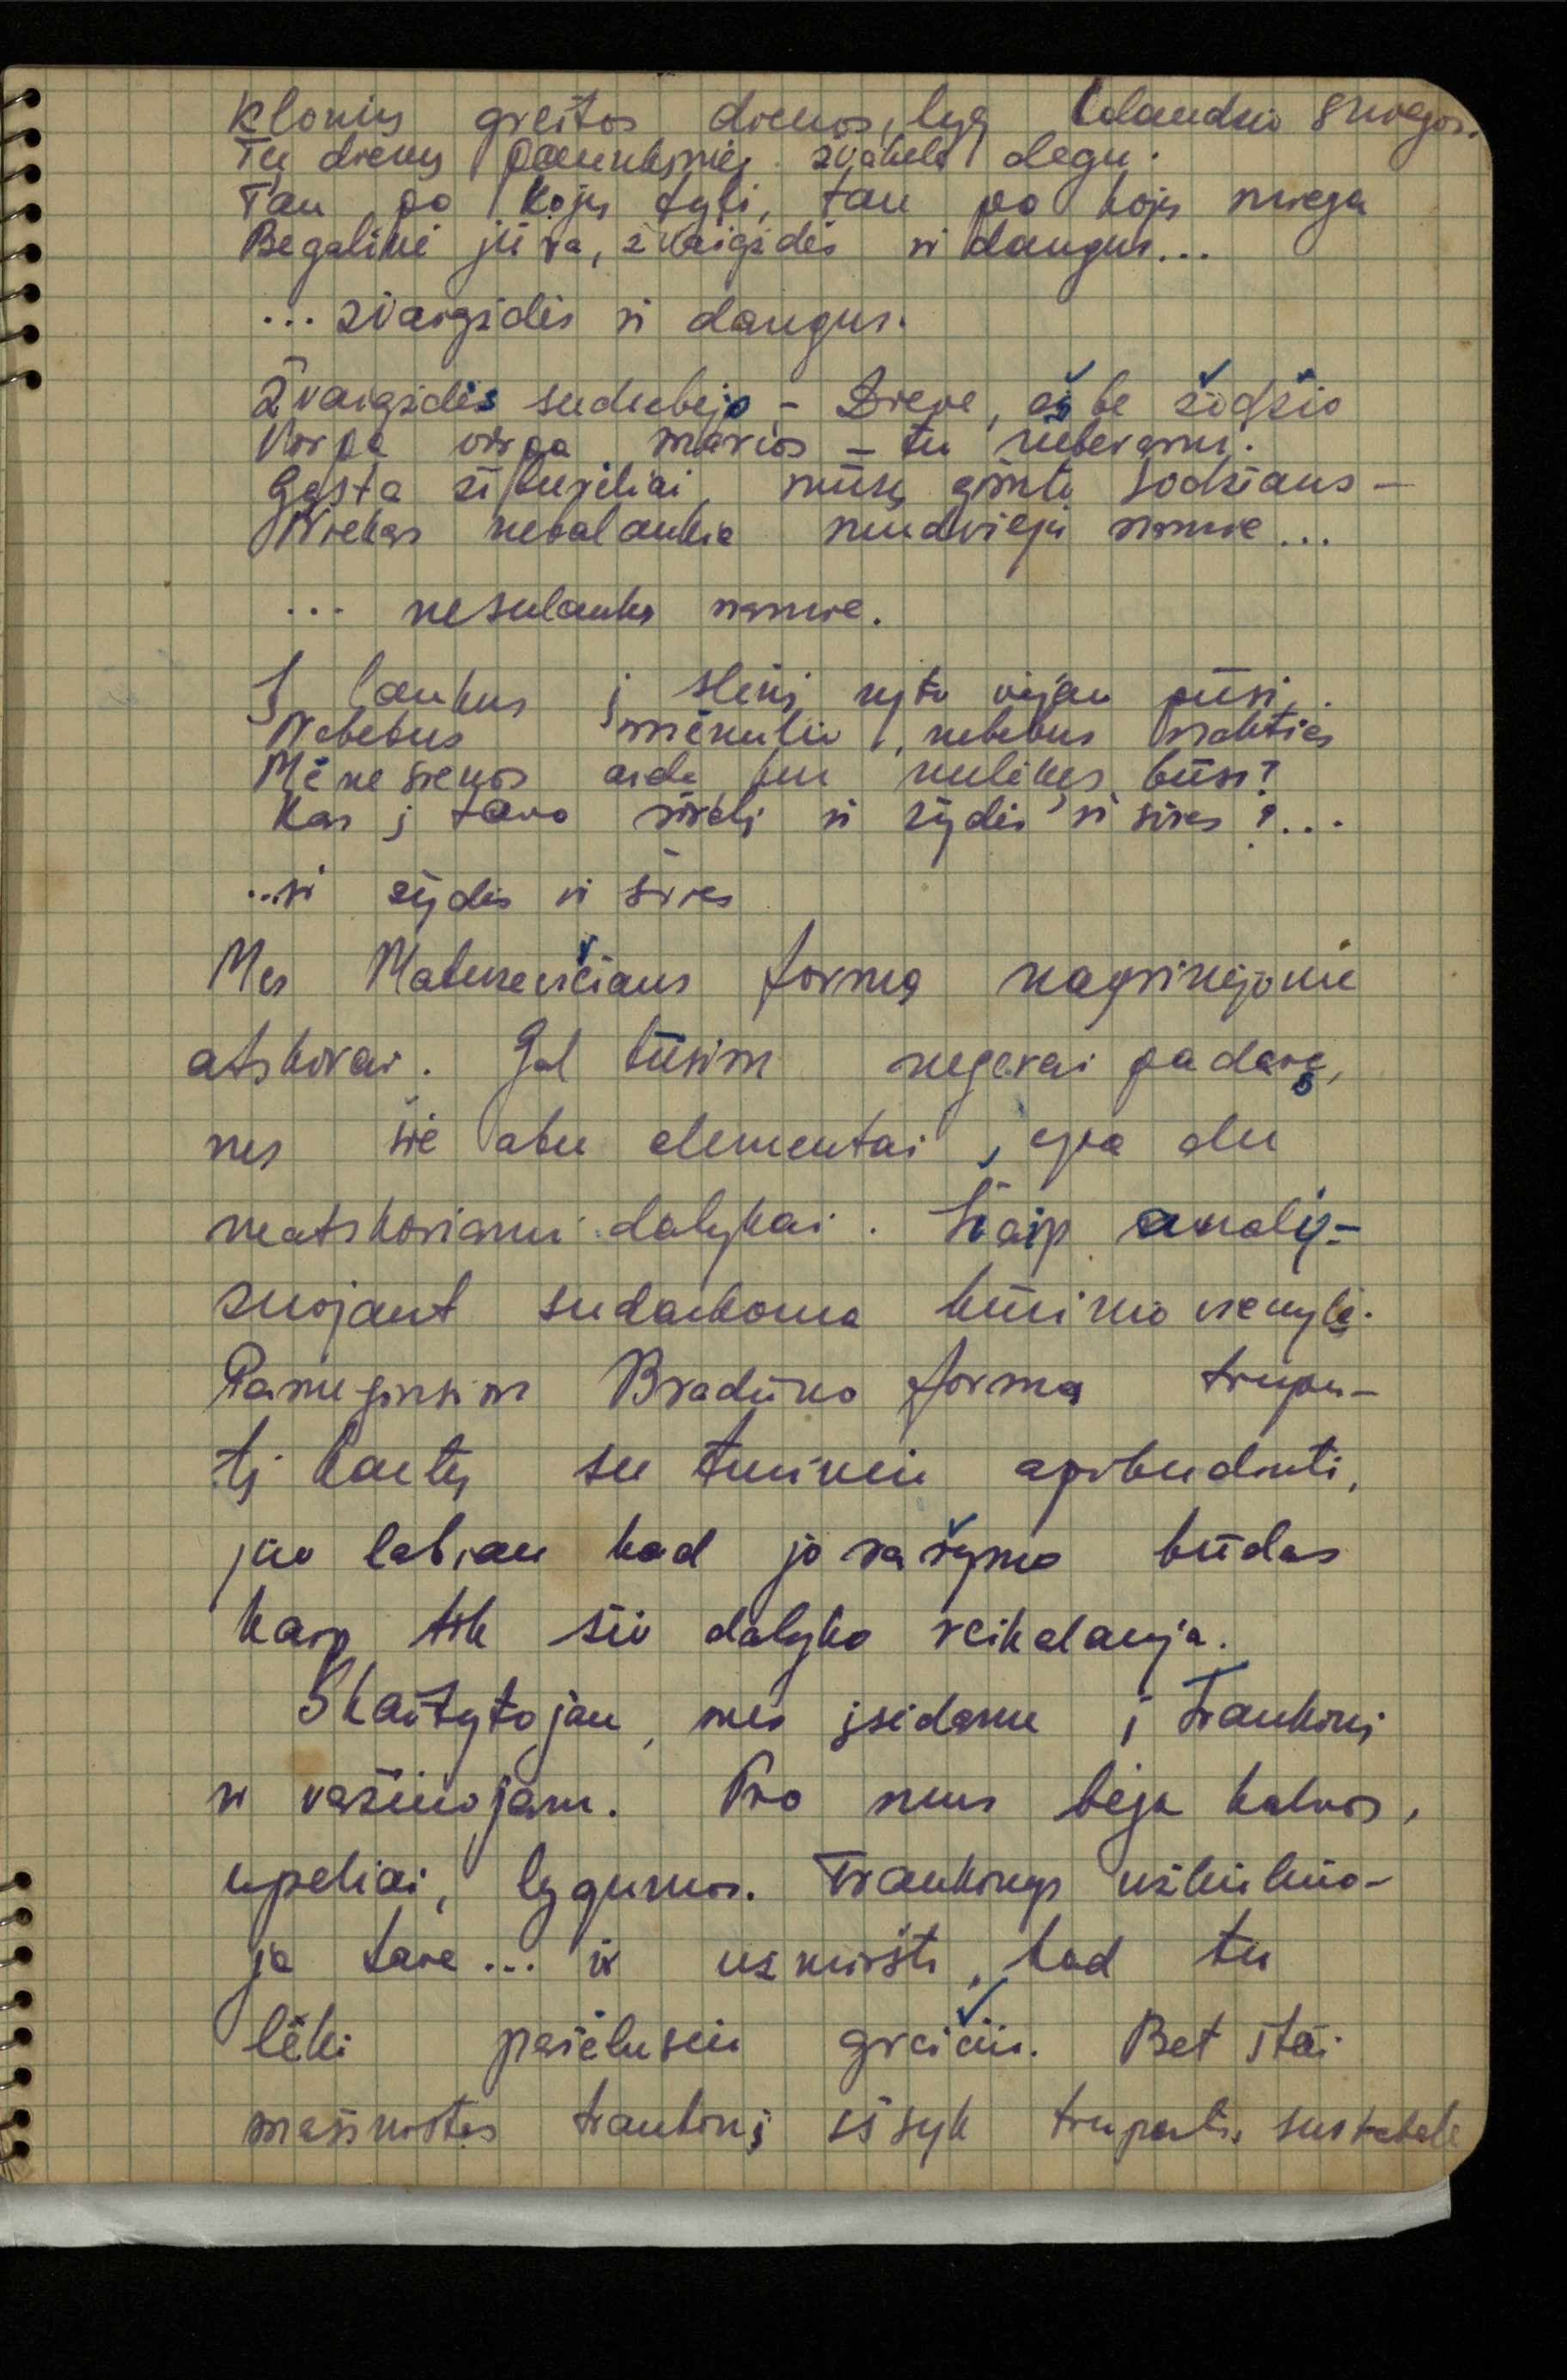 Klonių greitos dienos, lyg sniegos.
Tu dienų paunksmėj žvakele degu.
Tau po kojų tyli, tau po kojų miega
Begalinė jūra, žvaigždės ir dangus...
... žvaigždės ir dangus.
Žvaigždės sudrebėjo - Dieve, aš be žodžio
Virpa virpa marios - tu neberamus.
Gęsta žiburėliai, mūsų gimto sodžiaus -
Niekas nesulaukia mudviejų namie...
... nesulauks namie.
Į laukus į slėnį ryto vėjau pūsi,
Nebebus mėnulio, nebebus nakties
Mėnesienos aide, kur nulikęs būsi?
Kas į tavo širdį ir žydės ir švies?...
..ir žydės ir švies
Mes Matusevičiaus formą nagrinėjome
atskirai. Gal būsim negerai padarę,
nes šie abu elementai, yra du
neatskiriami dalykai. Šiaip analy-
zuojant sudarkoma kūrinio vienybė.
Pamėginsim Bradūno formą trupu-
tį kartu su turiniu apibudinti,
juo labiau kad jo rašymo būdas
kaip tik šio dalyko reikalauja.
Skaitytojau, mes įsėdame į traukinį
ir važiuojam. Pro mus bėga kalvos,
upeliai, lygumos. Traukinys užliūliuo-
ja tave... ir užmiršti, kad tu
lėki pašėlusiu greičiu. Bet štai
mašinistas traukinį iššyk truputį sustabdė